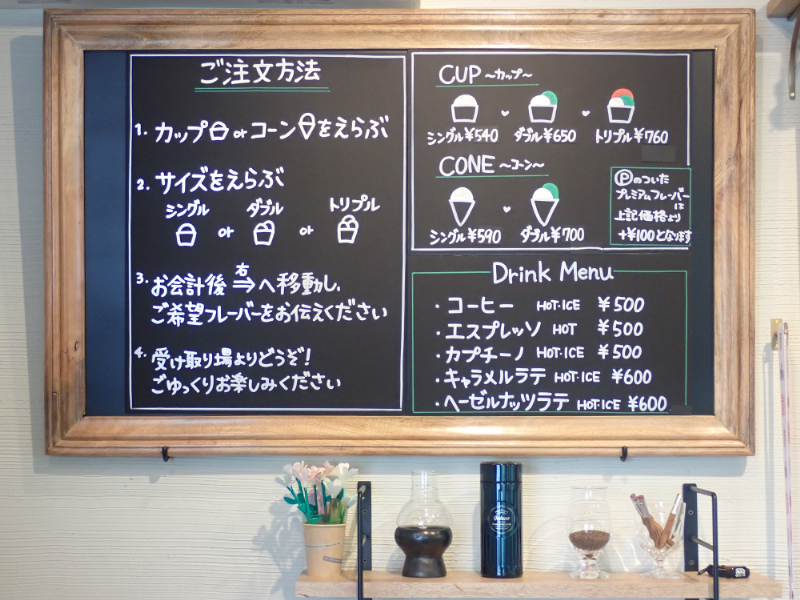 ご注文方法
1. カップ or コーン をえらぶ
2. サイズをえらぶ
シングル ダブル トリプル
or or
3. お会計後 右⇒へ移動し、
ご希望フレーバーをお伝えください
4. 受け取り場よりどうぞ!
ごゆっくりお楽しみください
CUP ～カップ～
シングル¥540 ダブル¥650 トリプル¥760
CONE ～コーン～
シングル¥590 ダブル¥700
Ⓟのついた
プレミアムフレーバー
は
上記価格より
+¥100となります
Drink Menu
・コーヒー HOT・ICE ¥500
・エスプレッソ HOT ¥500
・カプチーノ HOT・ICE ¥500
・キャラメルラテ HOT・ICE ¥600
・ヘーゼルナッツラテ HOT・ICE ¥600